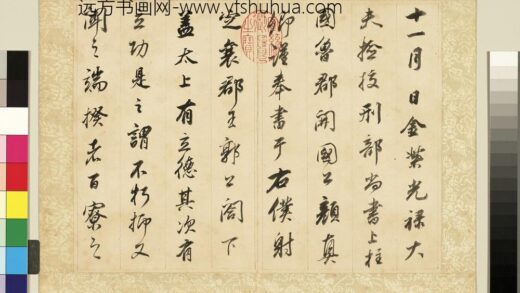 远方书画网-www.yfshuhua.com
十一月日金紫光禄大
夫检校刑部尚書上柱
國魯郡開國公顔真
卿謹奉書于右僕射
定襄郡王郭公閤下
蓋太上有立德其次有
立功是之謂不朽抑又
聞之端揆者百寮之